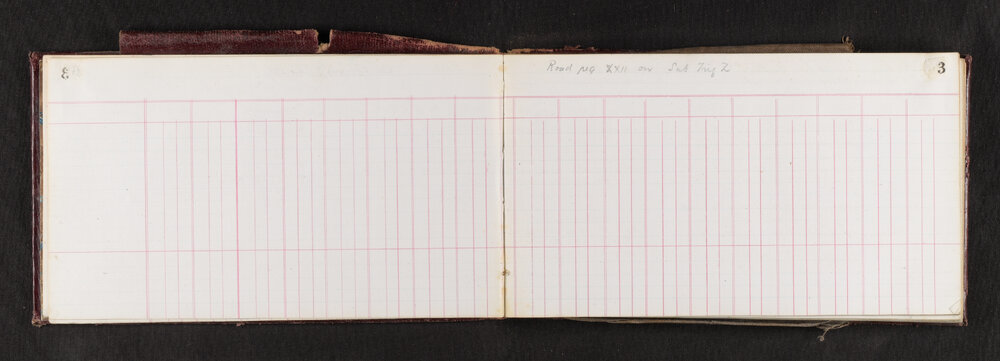 3
Road peg XXII on Sub Trig Z
3